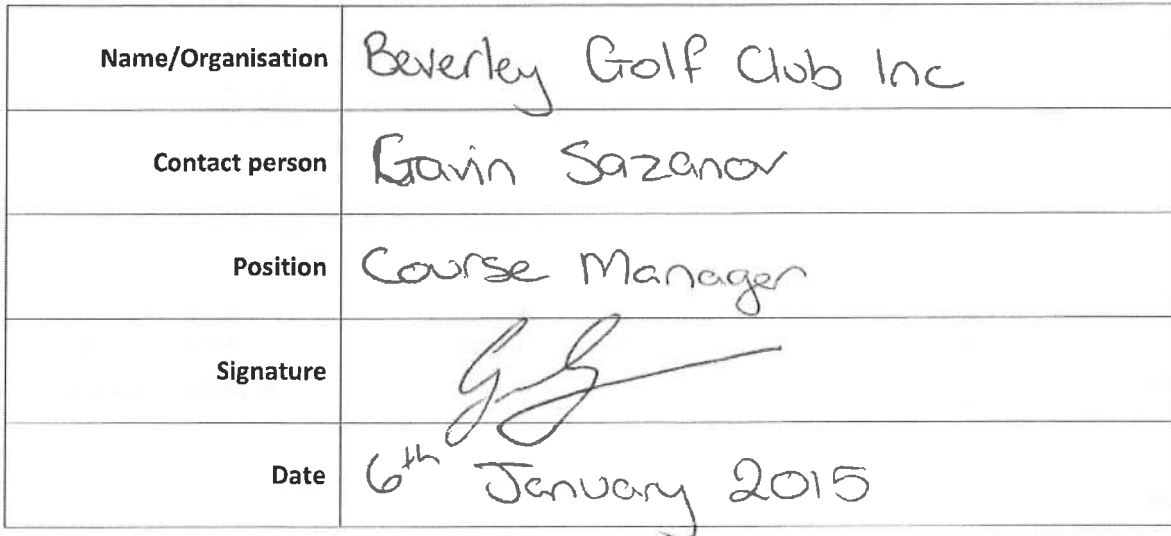 Name/Organisation Beverley Golf Club Inc
Contact person Gavin Sazanov
Position Course Manager
Signature
Date 6th January 2015